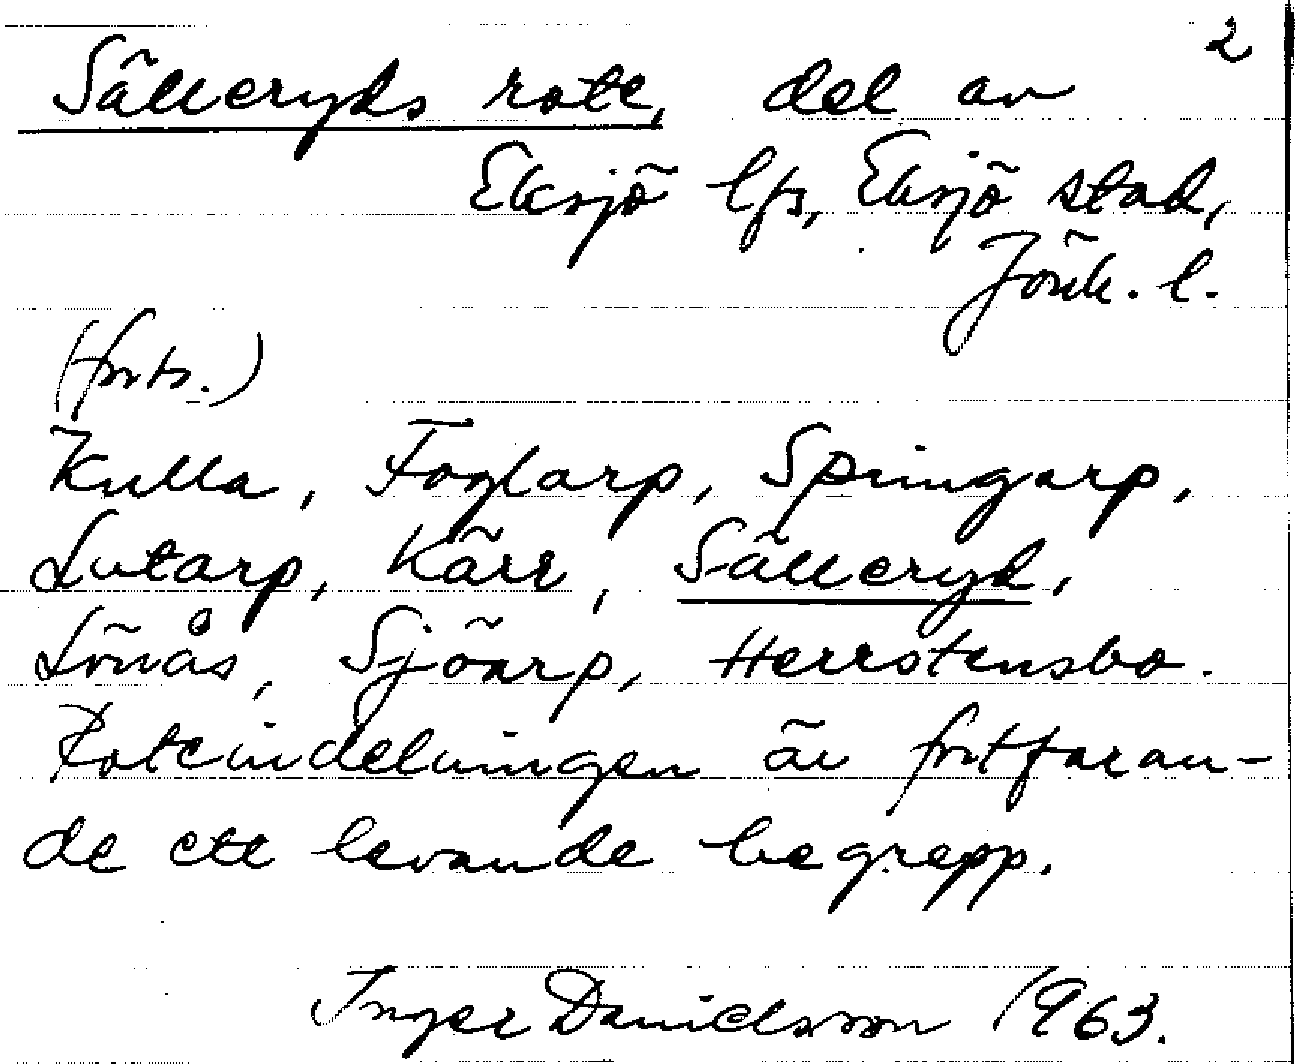 2
Sälleryds rote, del av
Eksjö lfs, Eksjö stad,
Jönk. l.
(forts.)
Kulla, Foglarp, Springarp,
Lutarp, Kärr, Sälleryd,
Lönås, Sjöarp, Herrstensbo.
Roteindelningen är fortfaran-
de ett levande begrepp.
Inger Danielsson 1963.